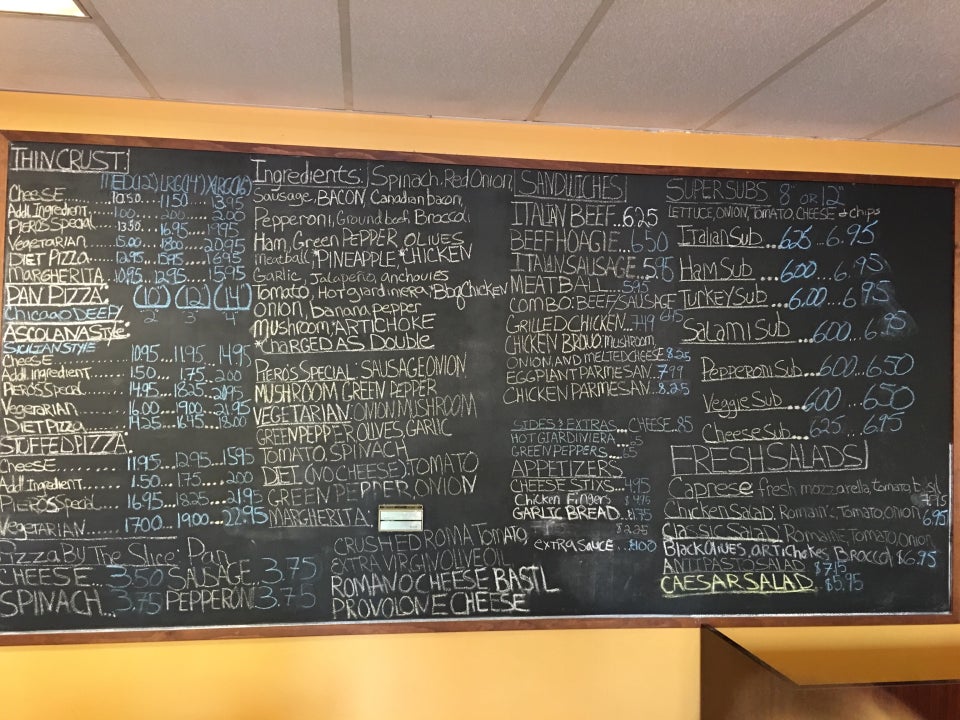 THIN CRUST!
MED(12) LRG(14) XLRG(16)
Cheese 10.50 .. 11.50 .. 13.95
Addl. Ingredient ... 1.00 ... 2.00 ... 2.00
PIERO'S Special 13.50 ... 16.95 ... 19.95
Vegetarian ... 18.00 ... 20.95
DIET PIZZA ... 12.95 ... 15.95 ... 16.95
MARGHERITA. 10.95 .. 12.95 ... 15.95
PAN PIZZA. (10) (12) (14)
Chicago DEEP 2 3 4
ASCOLANA Style.
SICILIAN STYLE
Cheese ... 10.95 ... 11.95 ... 14.95
Addl. Ingredient ... 1.50 ... 1.75 ... 2.00
PIERO'S Special 14.95 ... 18.25 ... 21.95
Vegetarian 16.00 ... 19.00 ... 21.95
DIET PIZZA ... 14.25 ... 16.45 ... 18.00
STUFFED PIZZA.
Cheese ........ 11.95 ... 12.95 ... 15.95
Add'l Ingredient ... 1.50 ... 1.75 ... 2.00
PIERO'S Special 16.95 ... 18.25 ... 21.95
Vegetarian ... 17.00 ... 19.00 ... 22.95
Pizza By The Slice' Pan
CHEESE ... 3.50 SAUSAGE ... 3.75
SPINACH ... 3.75 PEPPERONI 3.75
Ingredients. Spinach. Red Onion
Sausage, BACON, Canadian bacon,
Pepperoni, Ground beef, Broccoli
Ham, Green PEPPER, OLIVES
meatball *PINEAPPLE *CHICKEN
Garlic, Jalapeño, anchovies
Tomato, Hot giardiniera *Bbq Chicken
Onion, banana pepper
mushroom *ARTICHOKE
*CHARGED AS Double
PIERO'S SPECIAL: SAUSAGE ONION
MUSHROOM GREEN PEPPER
VEGETARIAN: ONION MUSHROOM
GREEN PEPPER OLIVES GARLIC
TOMATO, SPINACH
DIET (NO CHEESE) TOMATO
GREEN PEPPER ONION
MARGHERITA
CRUSHED ROMA TOMATO,
EXTRA VIRGIN OLIVE OIL
ROMANO CHEESE BASIL
PROVOLONE CHEESE
SANDWICHES
ITALIAN BEEF ... 6.25
BEEF HOAGIE ... 6.50
ITALIAN SAUSAGE .. 5.95
MEAT BALL ... 5.95
COMBO: BEEF/SAUSAGE 6.95
GRILLED CHICKEN ... 7.49
CHICKEN BROVO MUSHROOM
ONION AND MELTED CHEESE 8.25
EGGPLANT PARMESAN .. 7.99
CHICKEN PARMESAN .. 8.25
SIDES & EXTRAS ... CHEESE .85
HOT GIARDINIERA ... .65
GREEN PEPPERS ... .65
APPETIZERS
CHEESE STIXS ... 4.95
Chicken Fingers $4.95
GARLIC BREAD ... $1.75
$2.25
EXTRA SAUCE ... $1.00
SUPER SUBS 8" OR 12"
LETTUCE, ONION, TOMATO, CHEESE & chips
Italian Sub ... 6.25 ... 6.95
Ham Sub ... 6.00 ... 6.95
Turkey Sub ... 6.00 ... 6.95
Salami Sub ... 6.00 ... 6.95
Pepperoni Sub ... 6.00 ... 6.50
Veggie Sub ... 6.00 ... 6.50
Cheese Sub ... 6.25 ... 6.95
FRESH SALADS
Caprese fresh mozzarella, tomato, basil
7.95
Chicken Salad. Romain. Tomato, Onion, 6.95
Classic Salad Romaine, Tomato, Onion
Black Olives, Artichokes, Broccoli $6.95
ANTIPASTO SALAD $7.15
CAESAR SALAD $5.95